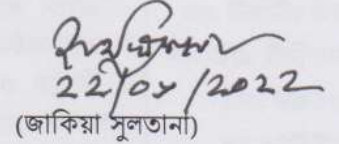 22/05/2022
(জাকিয়া সুলতানা)